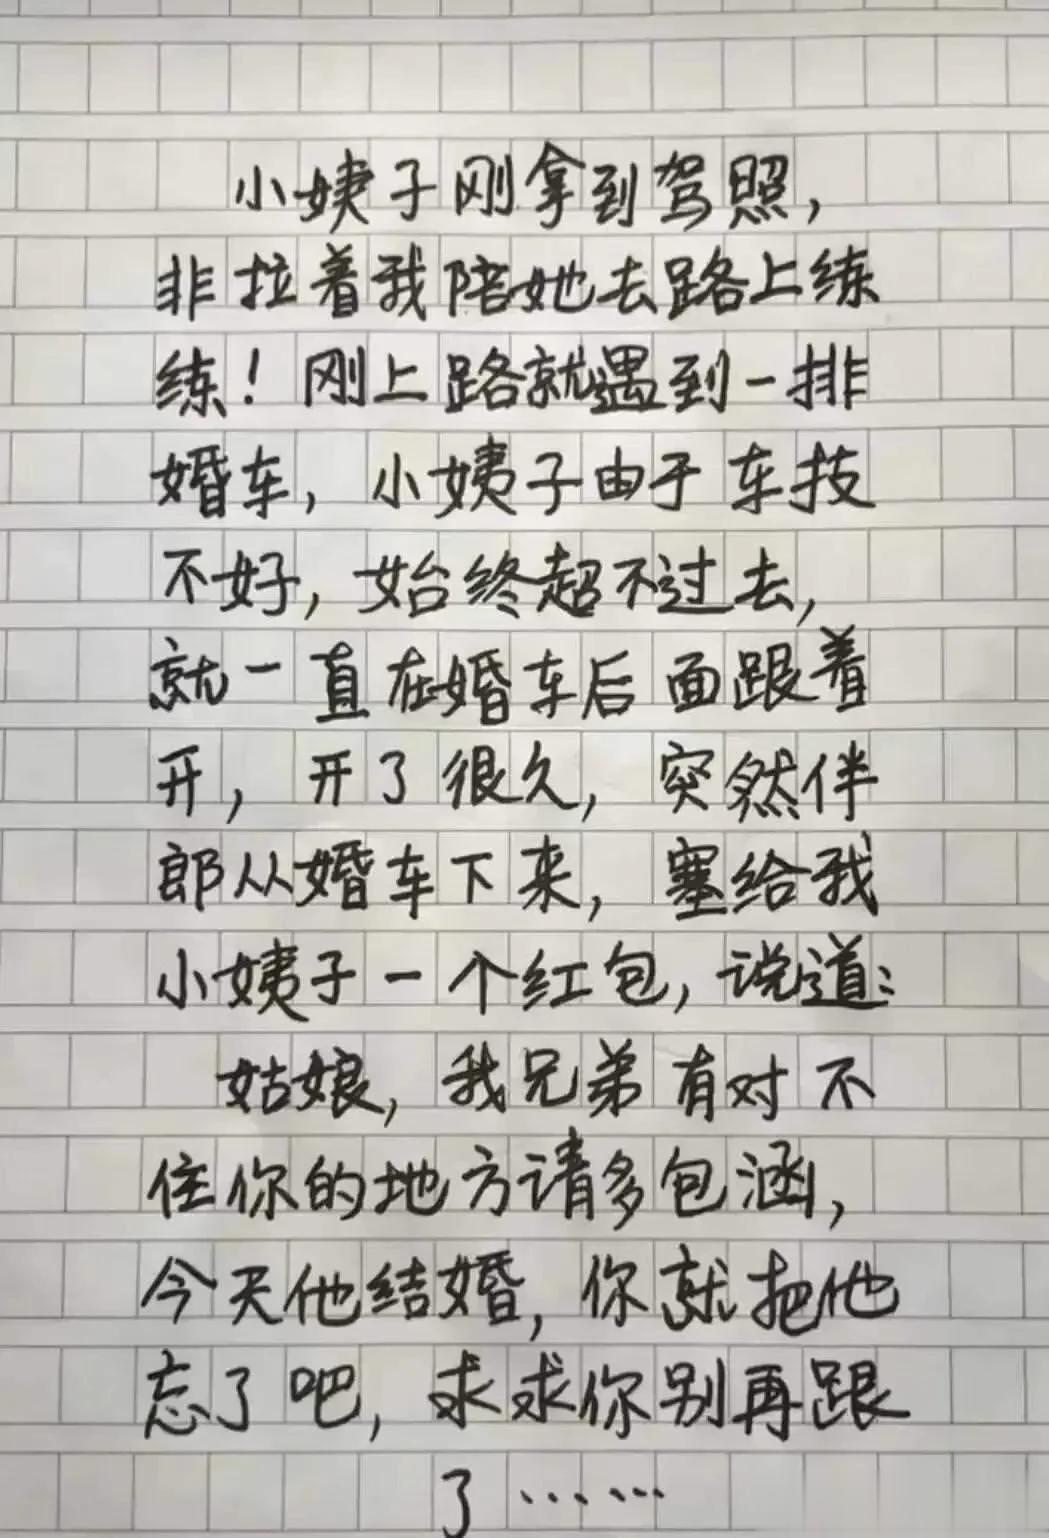 小姨子刚拿到驾照，
非拉着我陪她去路上练
练！刚上路就遇到一排
婚车，小姨子由于车技
不好，始终超不过去，
就一直在婚车后面跟着
开，开了很久，突然伴
郎从婚车下来，塞给我
小姨子一个红包，说道：
姑娘，我兄弟有对不
住你的地方请多包涵，
今天他结婚，你就把他
忘了吧，求求你别再跟
了……